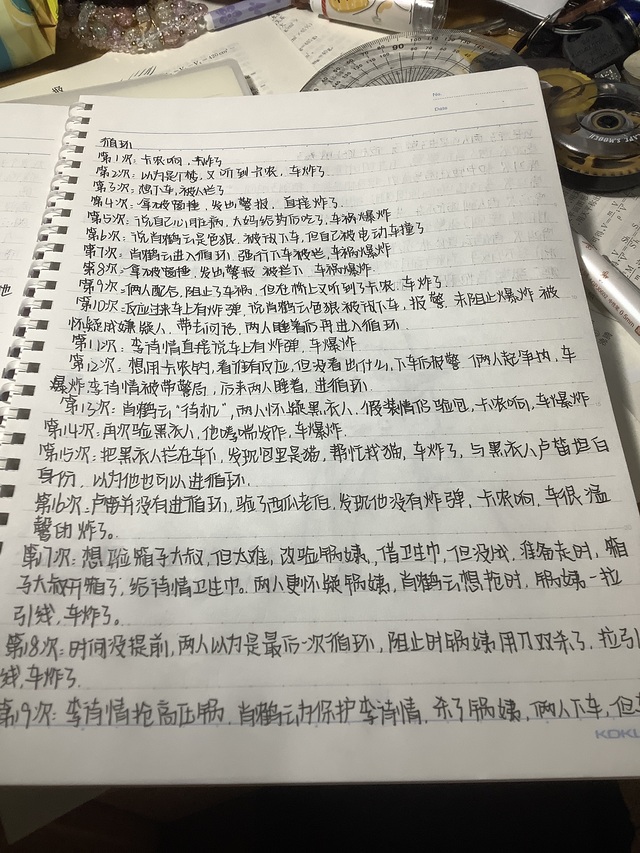 No.
Date
循环
第1次：卡农响，车炸了
第2次：以为是个梦，又听到卡农，车炸了
第3次：想下车，被人拦了
第4次：拿被碰撞，发出警报，直接炸了
第5次：说自己心脏病，大妈给药后吃了，车祸爆炸
第6次：说肖鹤云是色狼，被放下车，但自己被电动车撞了
第7次：肖鹤云进入循环，强行下车被拦，车祸爆炸
第8次：拿被碰撞，发出警报，被拦下，车祸爆炸
第9次：俩人配合，阻止了车祸，但在桥上又听到了卡农，车炸了
第10次：反应过来车上有炸弹，说肖鹤云色狼被放下车，报警，未阻止爆炸，被
怀疑成嫌疑人，带去问话，两人睡着后再进入循环
第11次：李诗情直接说车上有炸弹，车爆炸
第12次：想用卡农的，看谁有反应，但没看出什么，下车后报警，俩人起争执，车
爆炸，李诗情被带警局，后来两人睡着，进循环
第13次：肖鹤云“待机”，两人怀疑黑衣人，假装情侣验包，卡农响，车爆炸
第14次：再次验黑衣人，他哮喘发作，车爆炸
第15次：把黑衣人拦在车下，发现包里是猫，帮忙找猫，车炸了，与黑衣人卢笛坦白
身份，以为他也可以进循环
第16次：卢笛并没有进循环，验了西瓜老伯，发现他没有炸弹，卡农响，车很温
馨的炸了。
第17次：想验箱子大叔，但太难，改验锅姨，借卫生巾，但没成，准备走时，箱
子大叔开箱了，给诗情卫生巾。两人更怀疑锅姨，肖鹤云想抢时，锅姨一拉
引线，车炸了。
第18次：时间没提前，两人以为是最后一次循环，阻止时锅姨用刀双杀了，拉引
线，车炸了
第19次：李诗情抢高压锅，肖鹤云为保护李诗情，杀了锅姨，俩人下车，但
KOKU